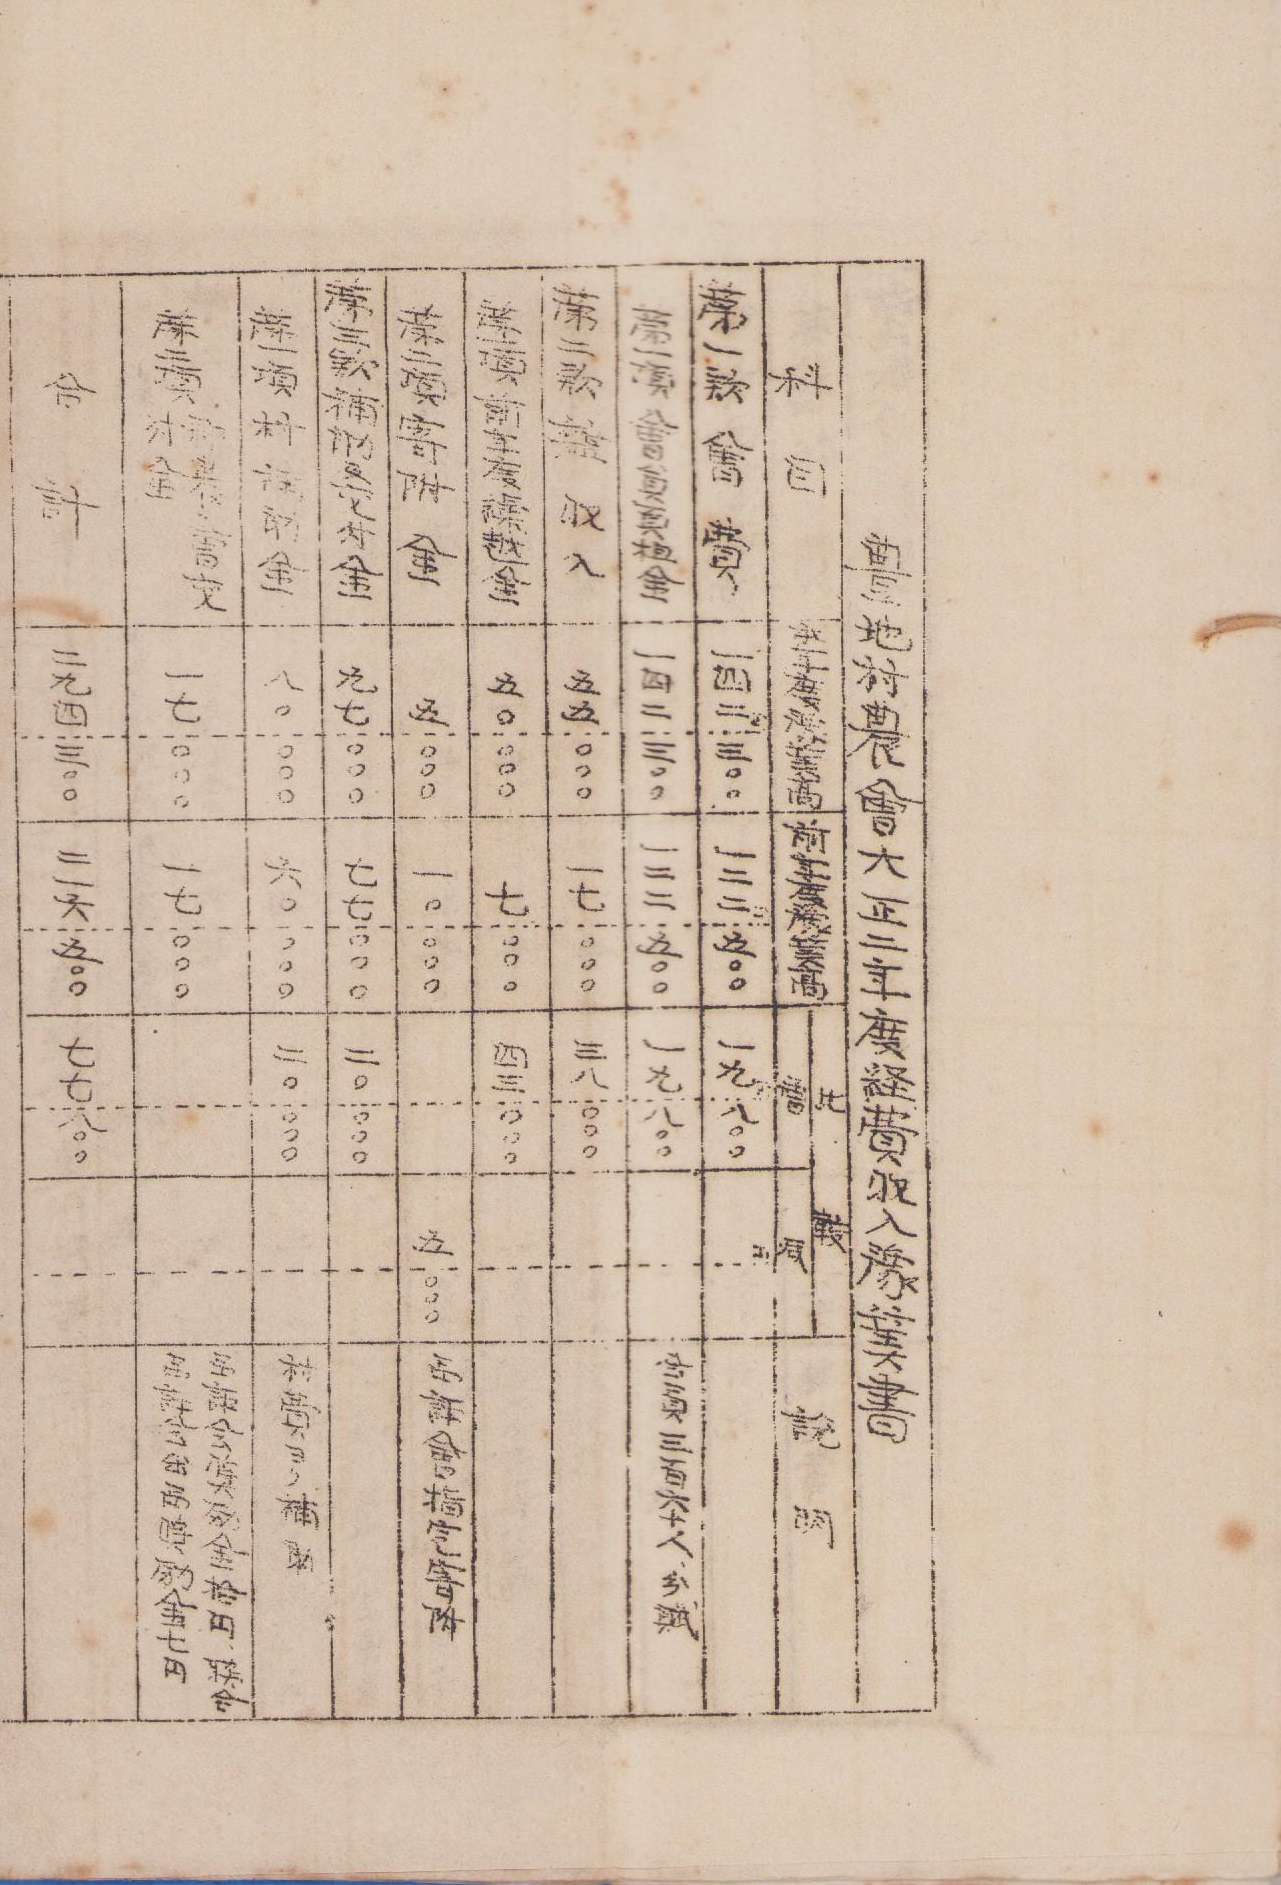 豊地村農會大正三年度経費収入豫算書
科目
本年度豫算高
前年度豫算高
比較
増
減
説明
第一款 會費
一四二円三〇〇
一二二円五〇〇
一九円八〇〇
第一項 會員負担金
一四二三〇〇
一二二五〇〇
一九八〇〇
右項三百六十人分賦
第二款 雑収入
五五〇〇〇
一七〇〇〇
三八〇〇〇
第一項 前年度繰越金
五〇〇〇〇
七〇〇〇
四三〇〇〇
第二項 寄附金
五〇〇〇
一〇〇〇〇
五〇〇〇
第三款 補助及交付金
九七〇〇〇
七七〇〇〇
二〇〇〇〇
第一項 村補助金
八〇〇〇〇
六〇〇〇〇
二〇〇〇〇
本村ヨリ補助
第二項
一七〇〇〇
一七〇〇〇
合計
二九四三〇〇
二一六五〇〇
七七八〇〇